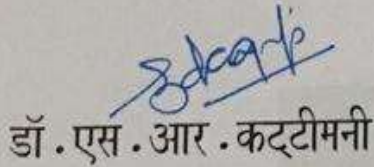 डॉ . एस . आर . कट्टीमनी